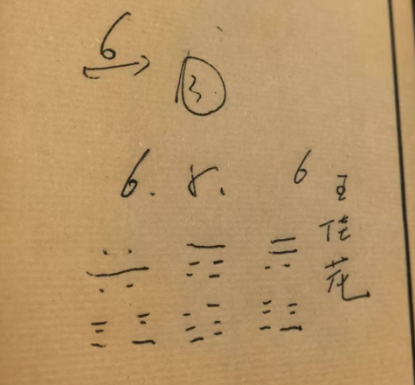 6
3
6. 8. 6
王佳花